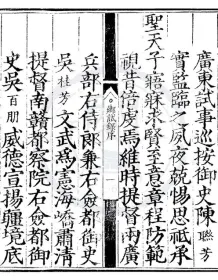 廣東試事巡按御史陳聯芳
實監臨之夙夜兢惕思祗承
聖天子寤寐求賢至意章程防範
視昔倍虔焉維時提督兩廣
兵部右侍郎兼右僉都御史
吳桂芳文武為憲海嶠肅清
提督南贛都察院右僉都御
史吳百朋威德宣揚疆境底